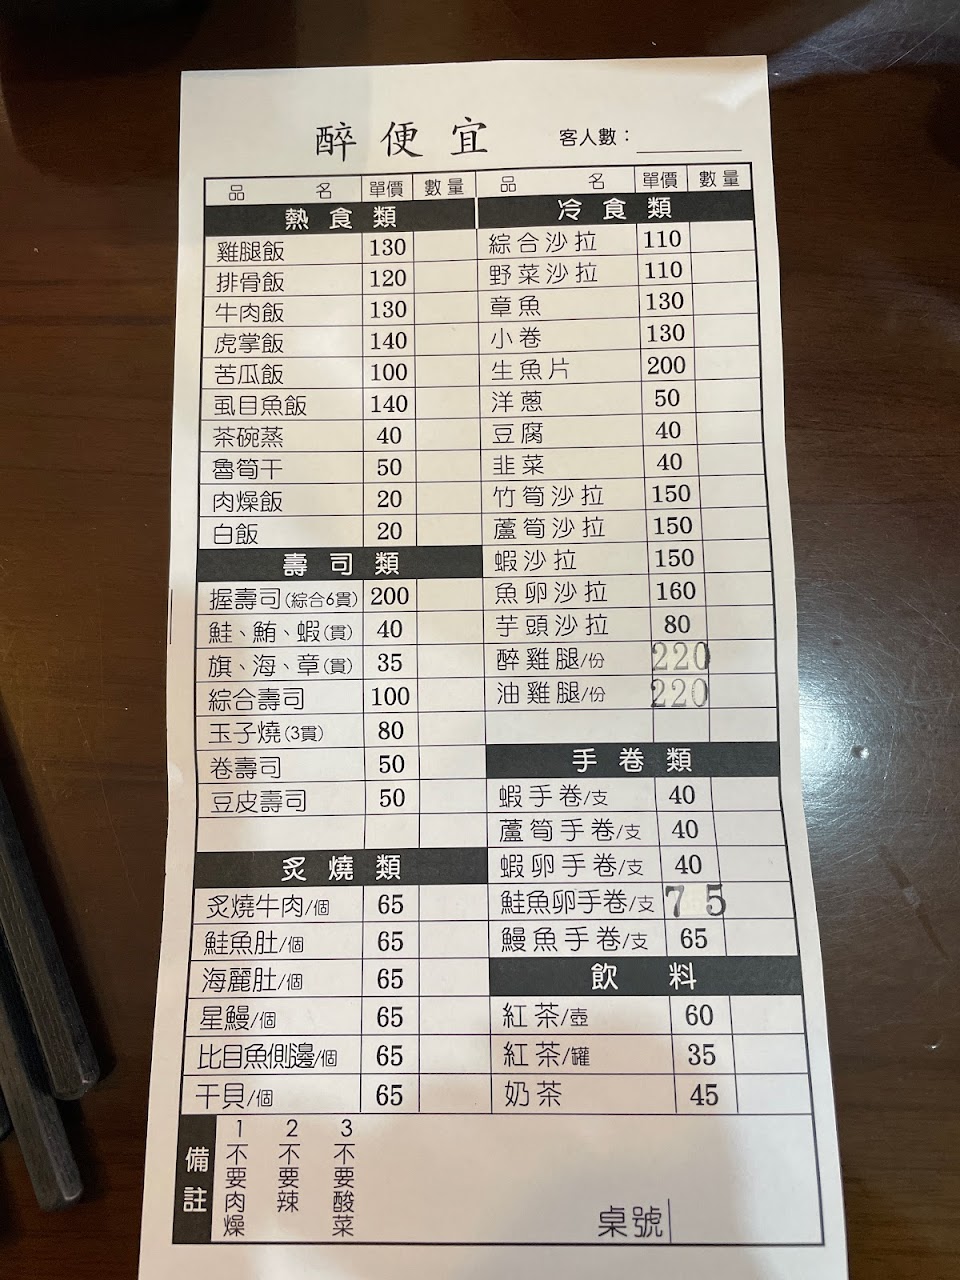 醉便宜
客人數：
品名 單價 數量
熱食類
雞腿飯 130
排骨飯 120
牛肉飯 130
虎掌飯 140
苦瓜飯 100
虱目魚飯 140
茶碗蒸 40
魯筍干 50
肉燥飯 20
白飯 20
壽司類
握壽司(綜合6貫) 200
鮭、鮪、蝦(貫) 40
旗、海、章(貫) 35
綜合壽司 100
玉子燒(3貫) 80
卷壽司 50
豆皮壽司 50
炙燒類
炙燒牛肉/個 65
鮭魚肚/個 65
海麗肚/個 65
星鰻/個 65
比目魚側邊/個 65
干貝/個 65
品名 單價 數量
冷食類
綜合沙拉 110
野菜沙拉 110
章魚 130
小卷 130
生魚片 200
洋蔥 50
豆腐 40
韭菜 40
竹筍沙拉 150
蘆筍沙拉 150
蝦沙拉 150
魚卵沙拉 160
芋頭沙拉 80
醉雞腿/份 220
油雞腿/份 220
手卷類
蝦手卷/支 40
蘆筍手卷/支 40
蝦卵手卷/支 40
鮭魚卵手卷/支 75
鰻魚手卷/支 65
飲料
紅茶/壺 60
紅茶/罐 35
奶茶 45
備註
1不要肉燥
2不要辣
3不要酸菜
桌號